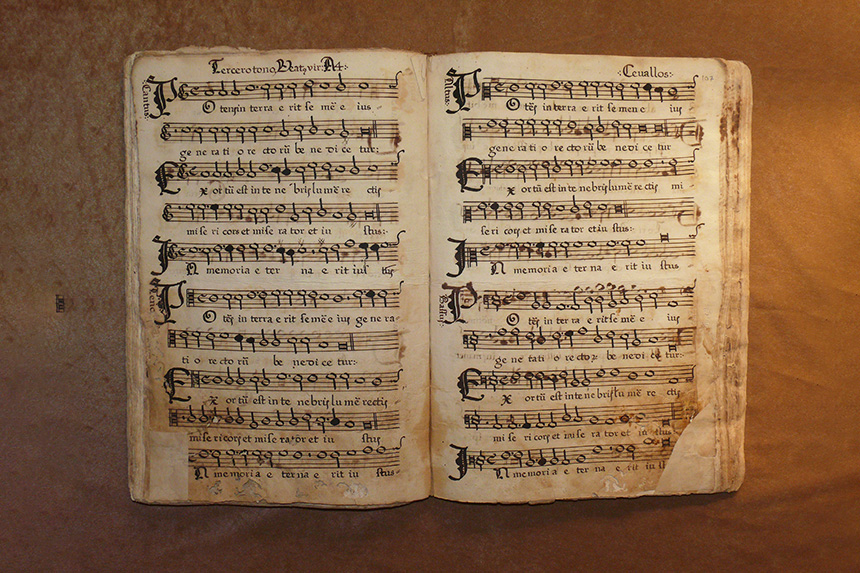 Tercero tono, Beatꝰ vir: A4:
Cantus:
P
O tens in terra e rit se mē e ius
ge ne ra ti o re cto rū be ne di ce tur:
E
X or tū est in te ne bris lu mē re ctis
mi se ri cors et mi se ra tor et iu stus:
I
N memoria e ter na e rit ius tus
P
O tēs in terra e rit se mē e ius ge ne ra-
ti o re cto rū be ne di ce tur:
E
X or tū est in te ne bris lu mē rectis
mi se ri cors et mi se ra tor et iu stus
N me mori a e ter na e rit iu stus-
:Cevallos:
Altus:
P
O tēs in terra e rit se men e ius
ge ne ra ti o re cto rū be ne di ce tur
E
X or tū est in te ne bris lu mē re ctis mi-
se ri cors et mi se ra tor et iu stus:
I
N memoria e ter na e rit iu stus
Bassus
P
O tēs in ter ra e rit se mē e ius
ge ne ra ti o re cto be ne di ce tur:
E
X or tū est in te ne bris lu mē re ctis
mi se ri cors et mi se ra tor et iu stus
I
N memori a e ter na e rit iu